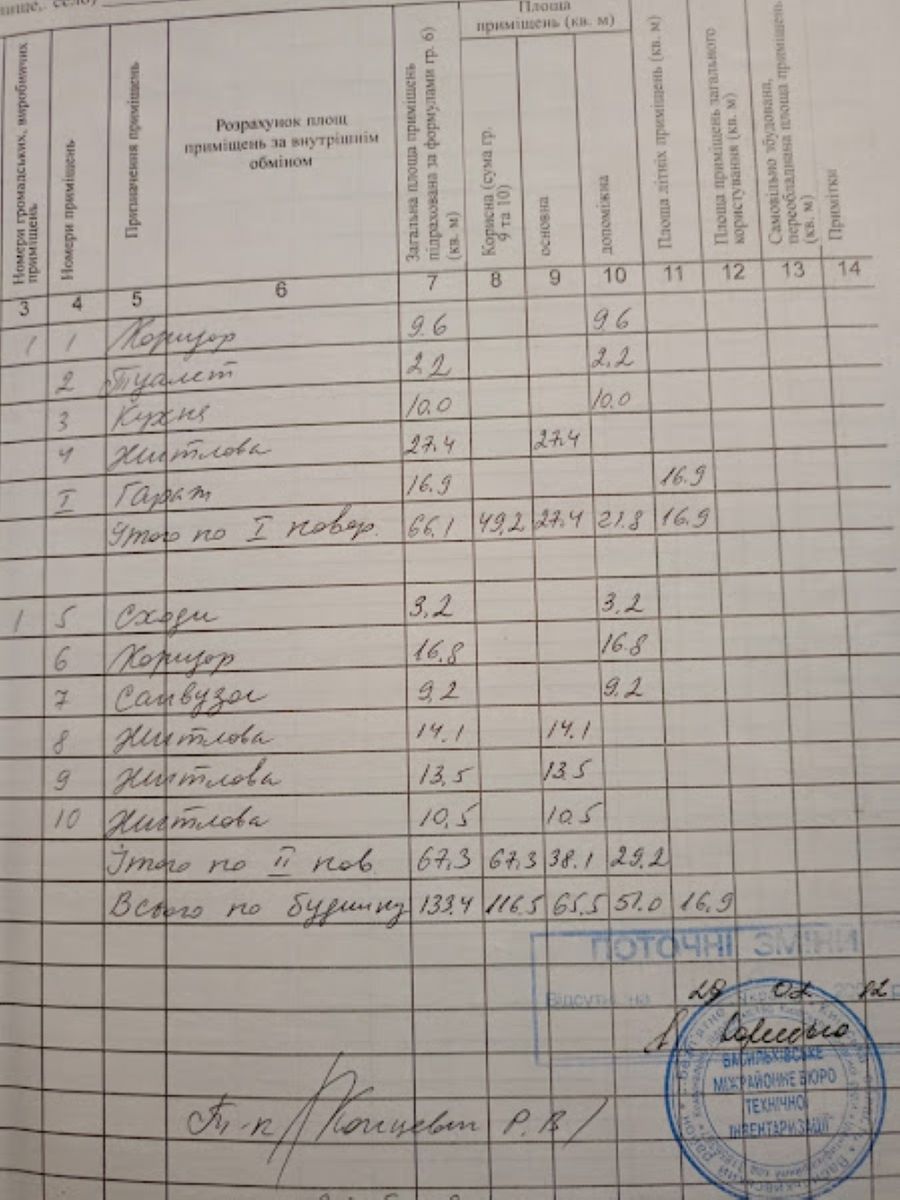 Номери громадських, виробничих приміщень
Номери приміщень
Призначення приміщень
Розрахунок площ
приміщень за внутрішнім
обміном
Загальна площа приміщень
підрахована за формулами гр. 6)
(кв. м)
Площа
приміщень (кв. м)
Корисна (сума гр.
9 та 10)
основна
допоміжна
Площа літніх приміщень (кв. м)
Площа приміщень загального
користування (кв. м)
Самовільно збудована,
переобладнана площа приміщень
(кв. м)
Примітки
3 4 5 6 7 8 9 10 11 12 13 14
1 1 Коридор 9.6 9.6
2 Туалет 2.2 2.2
3 Кухня 10.0 10.0
4 Житлова 27.4 27.4
I Гараж 16.9 16.9
Итого по I повер. 66.1 49.2 27.4 21.8 16.9
1 5 Сходи 3.2 3.2
6 Коридор 16.8 16.8
7 Санвузол 9.2 9.2
8 Житлова 14.1 14.1
9 Житлова 13.5 13.5
10 Житлова 10.5 10.5
Итого по II пов 67.3 67.3 38.1 29.2
Всього по будинку 133.4 116.5 65.5 51.0 16.9
ПОТОЧНІ ЗМІНИ
Відсутні на 29 12
ВАСИЛЬКІВСЬКЕ
МІЖРАЙОННЕ БЮРО
ТЕХНІЧНОЇ
ІНВЕНТАРИЗАЦІЇ
Т-к Р.В/